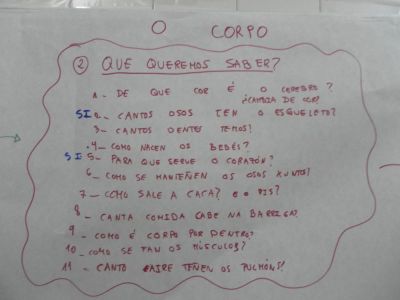 O CORPO
② QUE QUEREMOS SABER?
1- DE QUE COR É O CEREBRO?
¿CAMBIA DE COR?
SI 2- CANTOS OSOS TEN O ESQUELETO?
3- CANTOS DENTES TEMOS?
4- COMO NACEN OS BEBÉS?
SI 5- PARA QUE SERVE O CORAZÓN?
6- COMO SE MANTEÑEN OS OSOS XUNTOS?
7- COMO SALE A CACA? E O PIS?
8- CANTA COMIDA CABE NA BARRIGA?
9- COMO É CORPO POR DENTRO?
10- COMO SE FAN OS MÚSCULOS?
11- CANTO AIRE TEÑEN OS PULMÓNS?